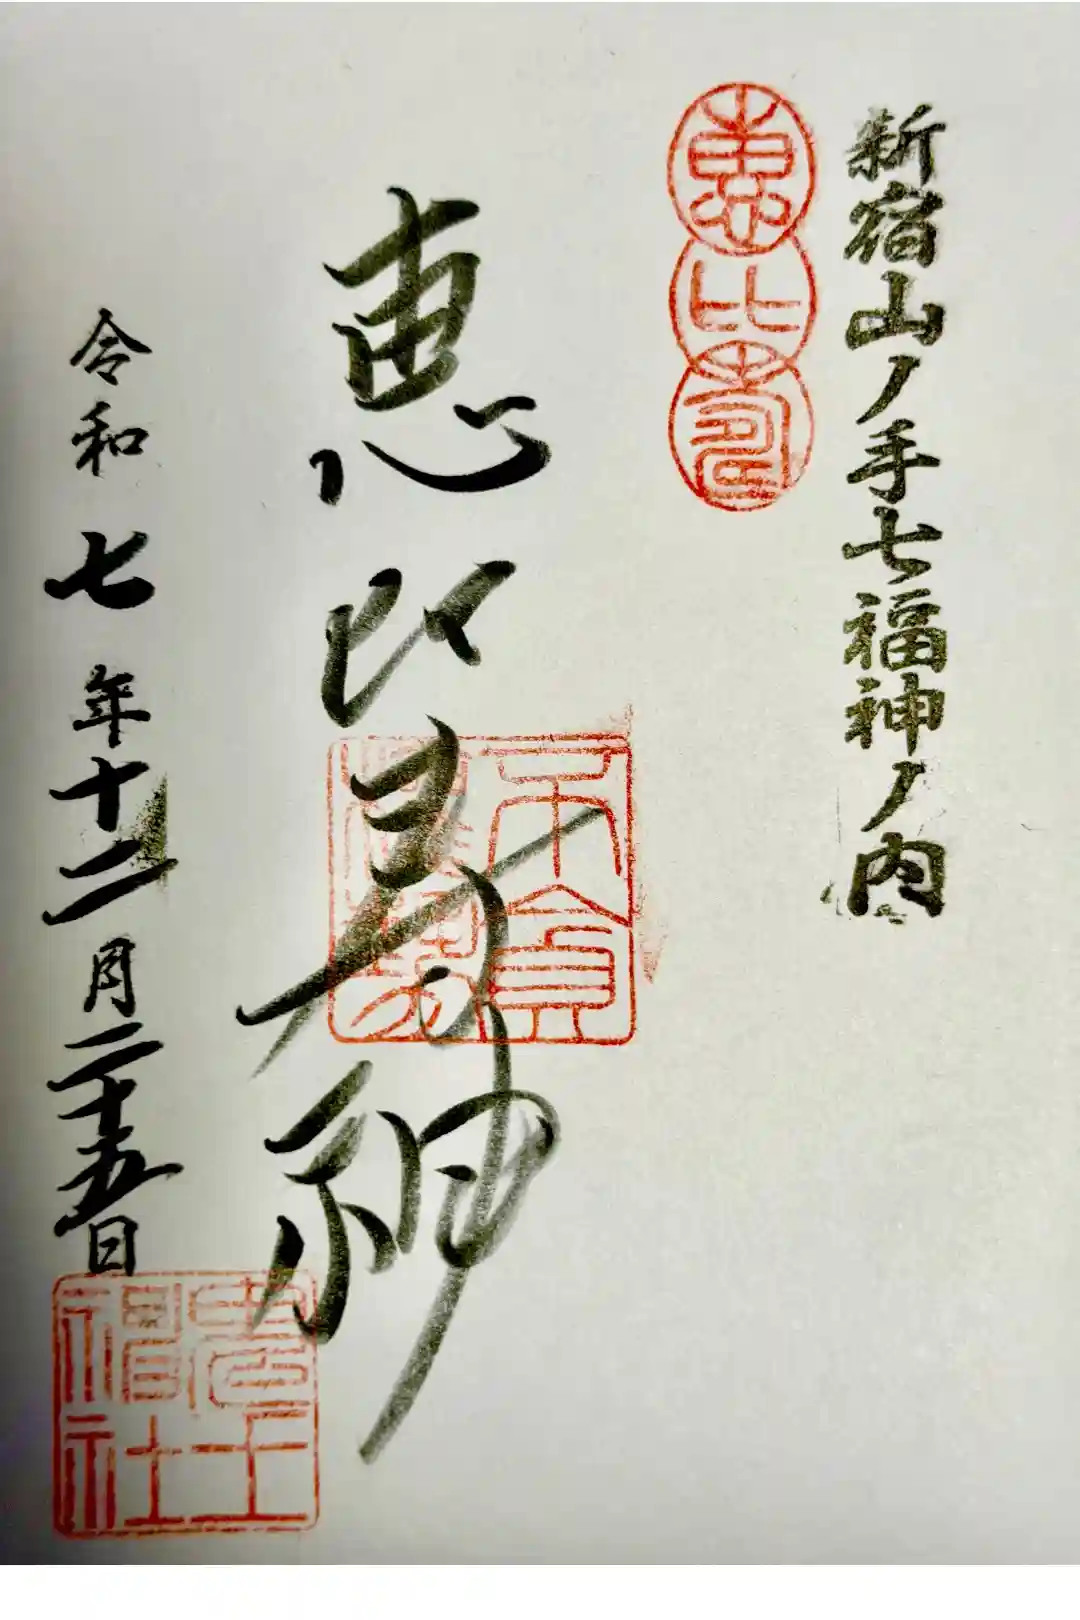 新宿山ノ手七福神ノ内
恵比寿
恵比寿神
令和七年十二月二十五日
鬼王
稲社